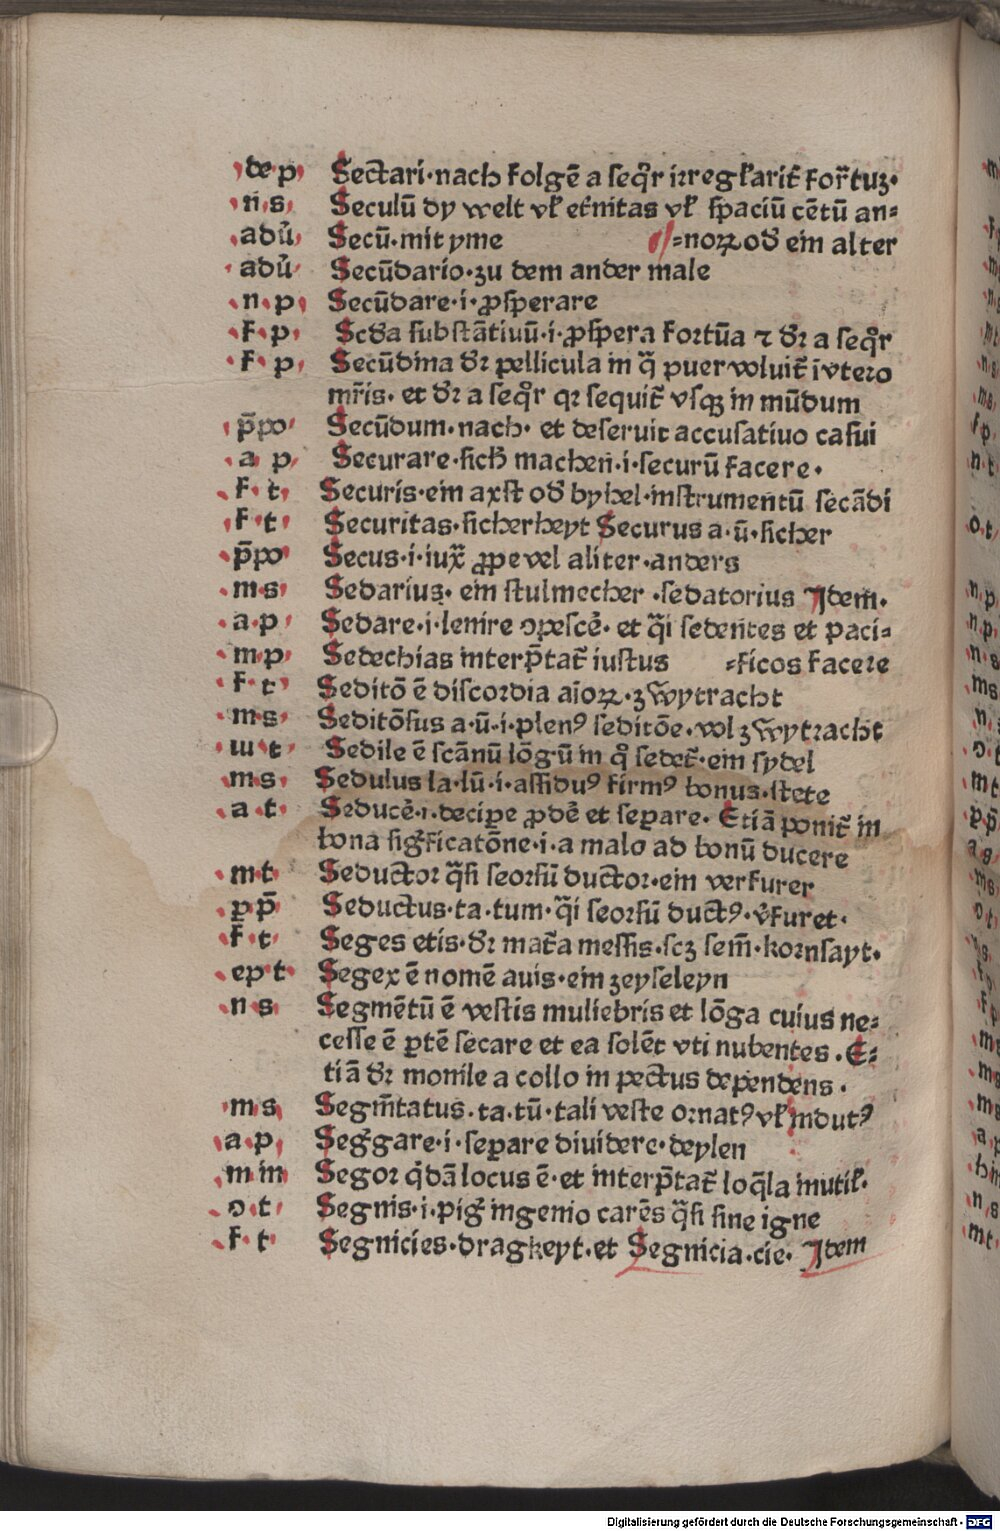 de p Sectari·nach folgē a seq̄r irregl'arit̄ for̄tuʒ·
n s Seculū dy welt vl' et̄nitas vl' spaciū cētū an=
adū Secū·mit yme =noꝝ od̄ ein alter
adū Secūdario·zu dem ander male
n p Secūdare·i·ꝓsperare
f p Scd̄a substātiuū·i·ꝓspera fortūa ⁊ dr̄ a seq̄r
f p Secūdina dr̄ pellicula in q̄ puer voluit̄ ī vtero
mr̄is· et dr̄ a seq̄r qꝛ sequit̄ vsqꝫ in mūdum
p̄po Secūdum·nach· et deseruit accusatiuo casui
a p Securare·sich machen·i·securū facere·
f t Securis·ein axst od̄ byhel·instrumentū secādi
f t Securitas·sicherheyt Securus a·ū·sicher
p̄po Secus·i·iux̄ ꝓpe vel aliter·anders
m s Sedarius· ein stulmecher ·sedatorius Jdem·
a p Sedare·i·lenire ↄpescē· et q̄si sedentes et paci=
m p Sedechias interp̄tat̄ iustus =ficos facere
f t Seditō ē discordia aīoꝝ·zwytracht
m s Seditōsus a·ū·i·plenꝰ seditōe·vol zwytracht
m t Sedile ē scānū lōgū in q̄ sedet̄·ein sydel
m s Sedulus la·lū·i·assiduꝰ firmꝰ bonus·stete
a t Seducē·i·decipe ꝓdē et separe· Etiā ponit̄ in
bona sigficatōne·i·a malo ad bonū ducere
m t Seductor q̄si seorsū ductor·ein verfurer
p p̄ Seductus·ta·tum·q̄si seorsū ductꝰ·v̄furet·
f t Seges etis·dr̄ mat̄a messis·scʒ sem̄·kornsayt·
ep t Segex ē nomē auis·ein zeyseleyn
n s Segmētū ē vestis muliebris et lōga cuius ne=
cesse ē ꝑtē secare et ea solēt vti nubentes·E=
tiā dr̄ monile a collo in pectus dependens·
m s Segm̄tatus·ta·tū·tali veste ornatꝰ vl' indutꝰ
a p Seg̃gare·i·separe diuidere·deylen
m in Segor q̄dā locus ē·et interp̄tat̄ loq̄la inutil'·
o t Segnis·i·pig̃ ingenio carēs q̄si sine igne
f t Segnicies·dragkeyt·et Segnicia·cie· Jdem
Digitalisierung gefördert durch die Deutsche Forschungsgemeinschaft - DFG